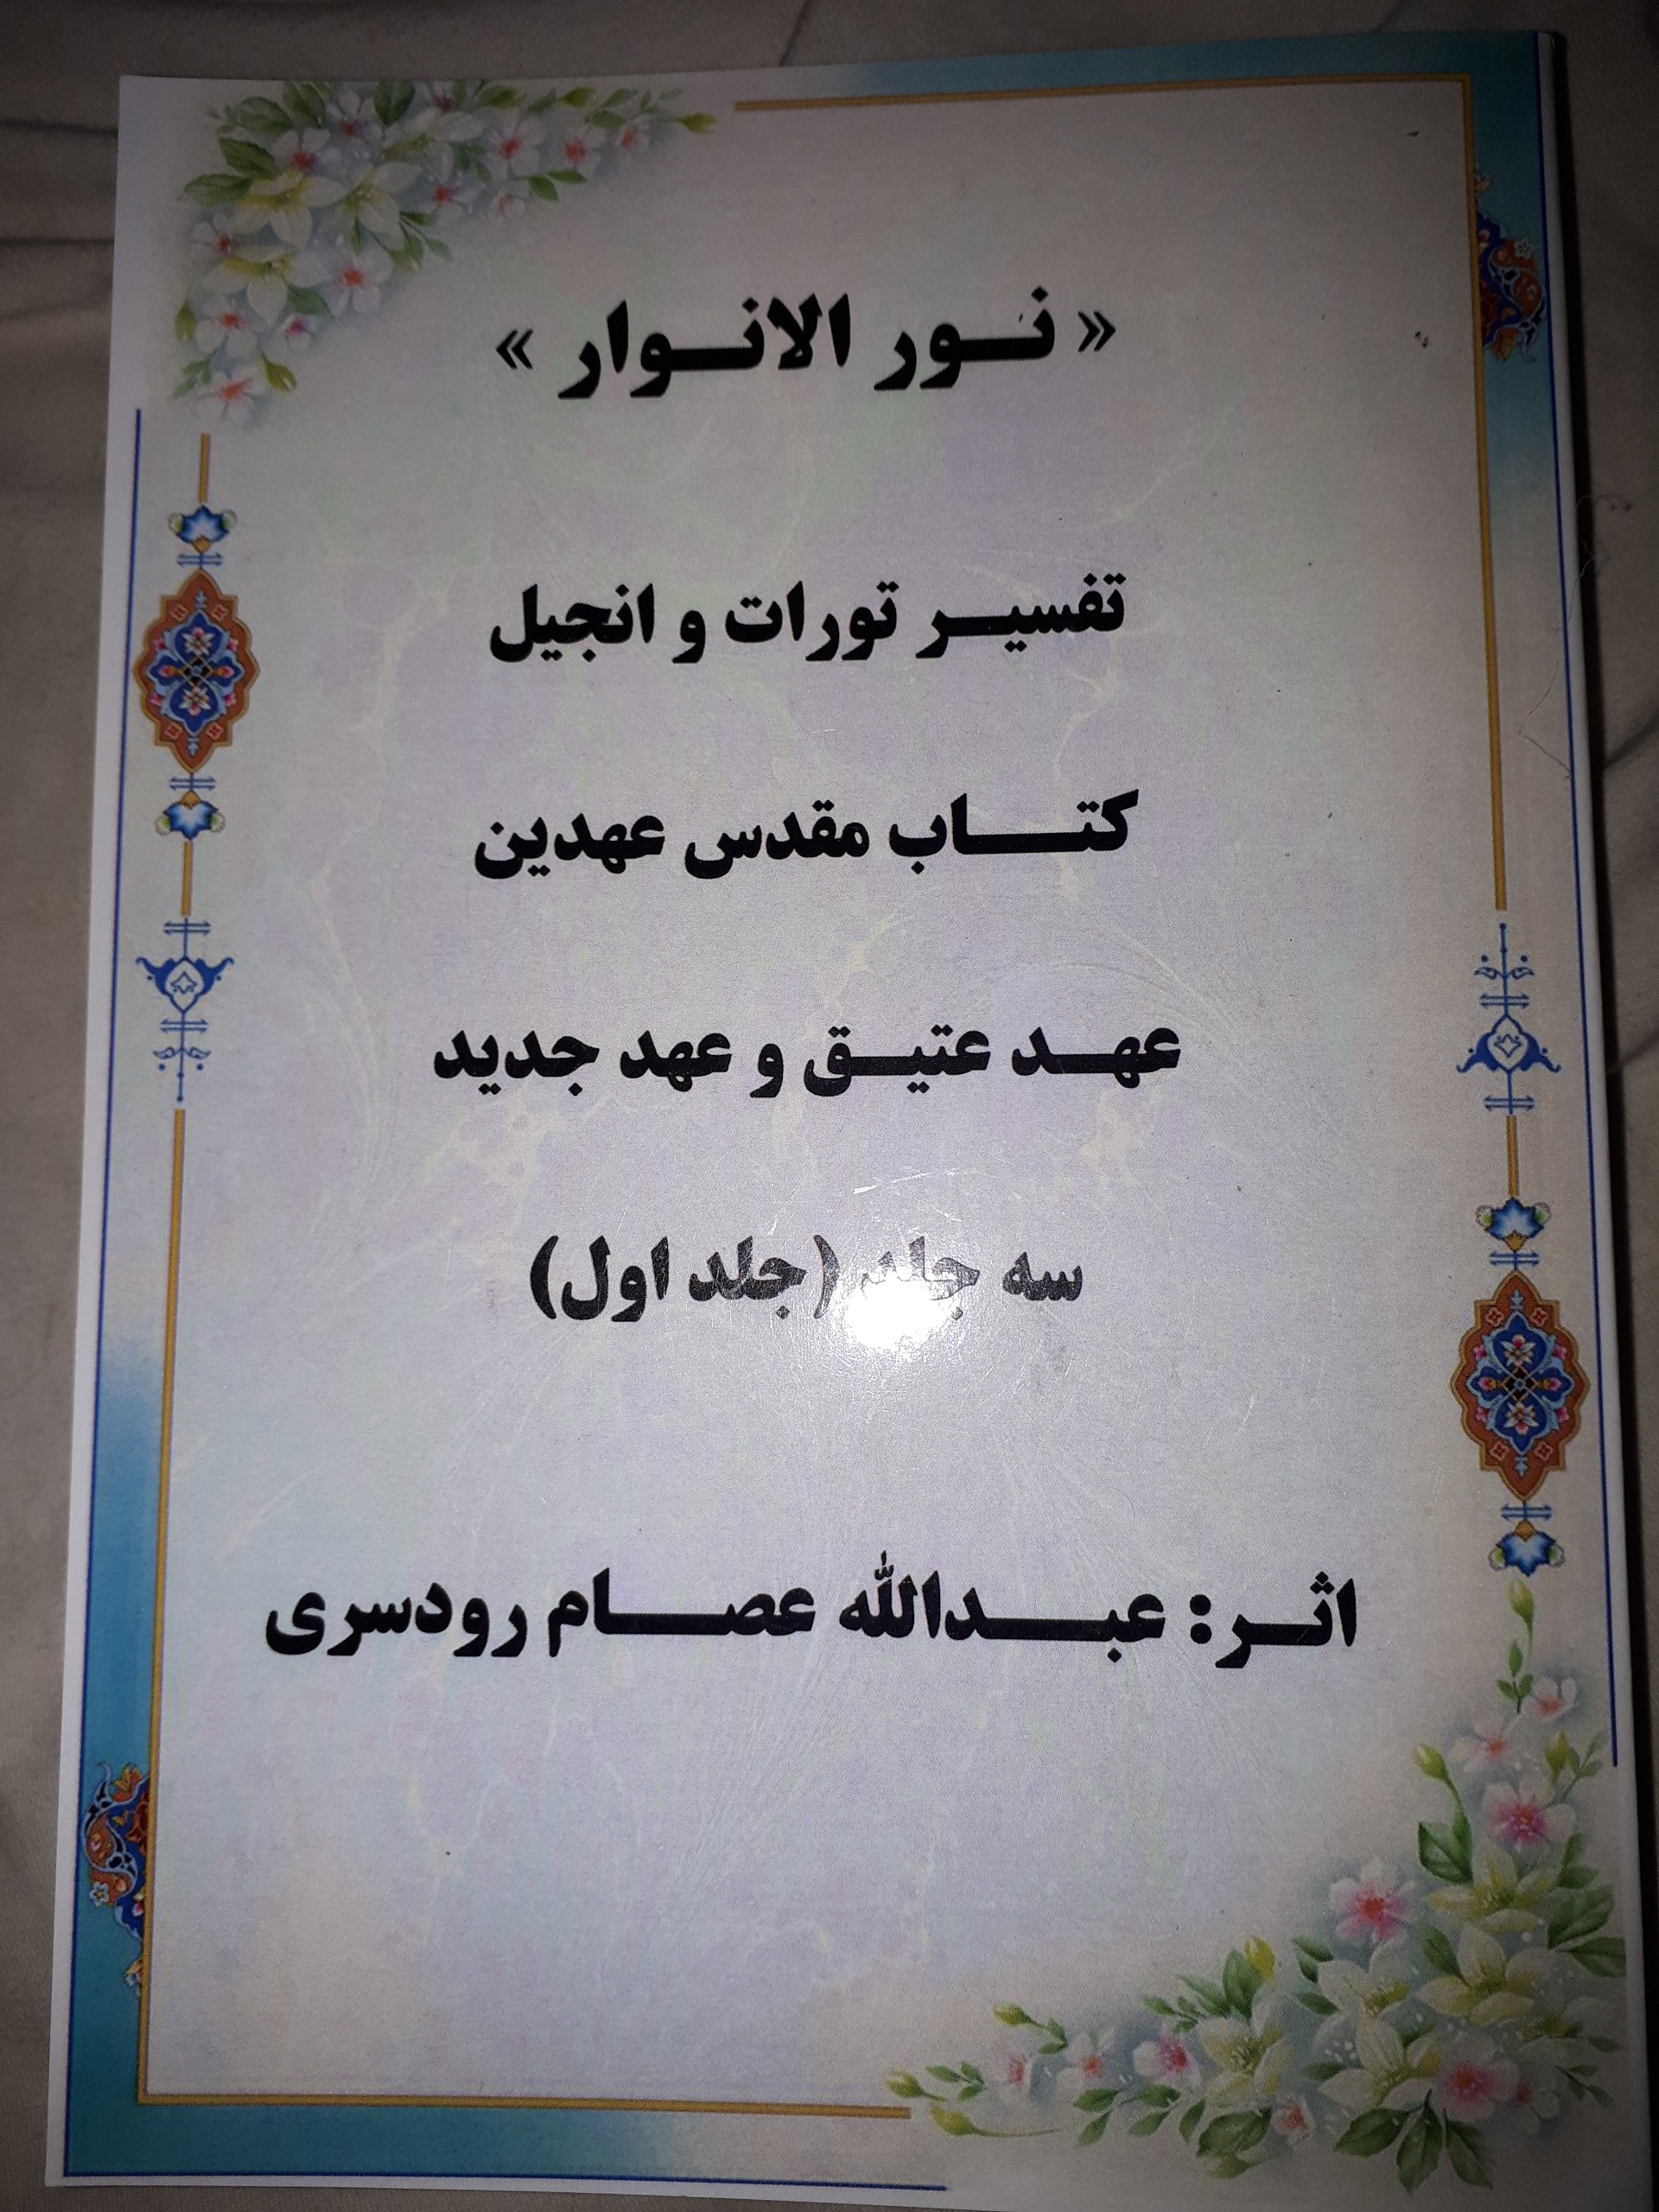 « نور الانوار »
تفسیر تورات و انجیل
کتاب مقدس عهدین
عهد عتیق و عهد جدید
سه جلد (جلد اول)
اثر: عبدالله عصام رودسری